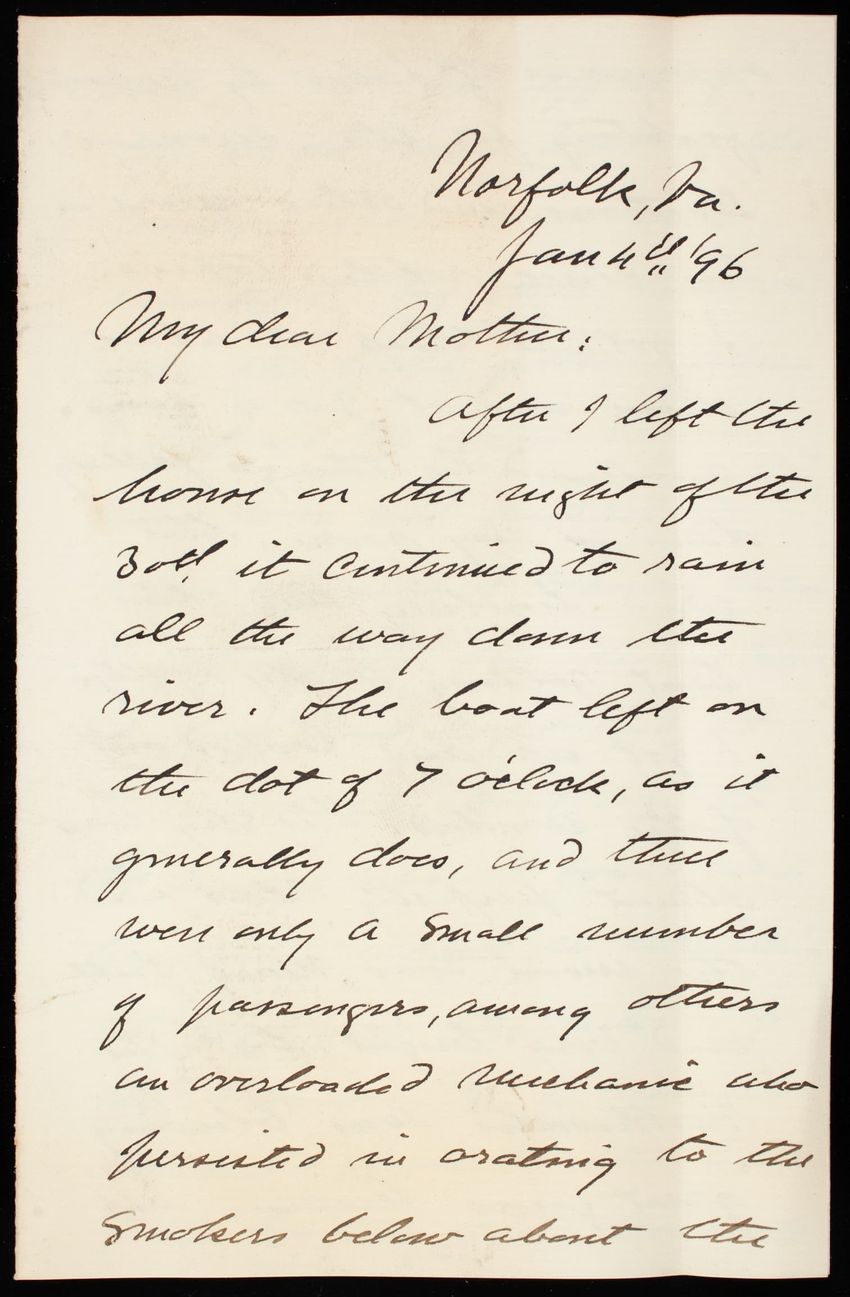 Norfolk, Va.
Jan 4th '96
My dear Mother:
After I left the
house on the night of the
30th it continued to rain
all the way down the
river. The boat left on
the dot of 7 o'clock, as it
generally does, and there
were only a small number
of passengers, among others
an overloaded mechanic who
persisted in orating to the
smokers below about the